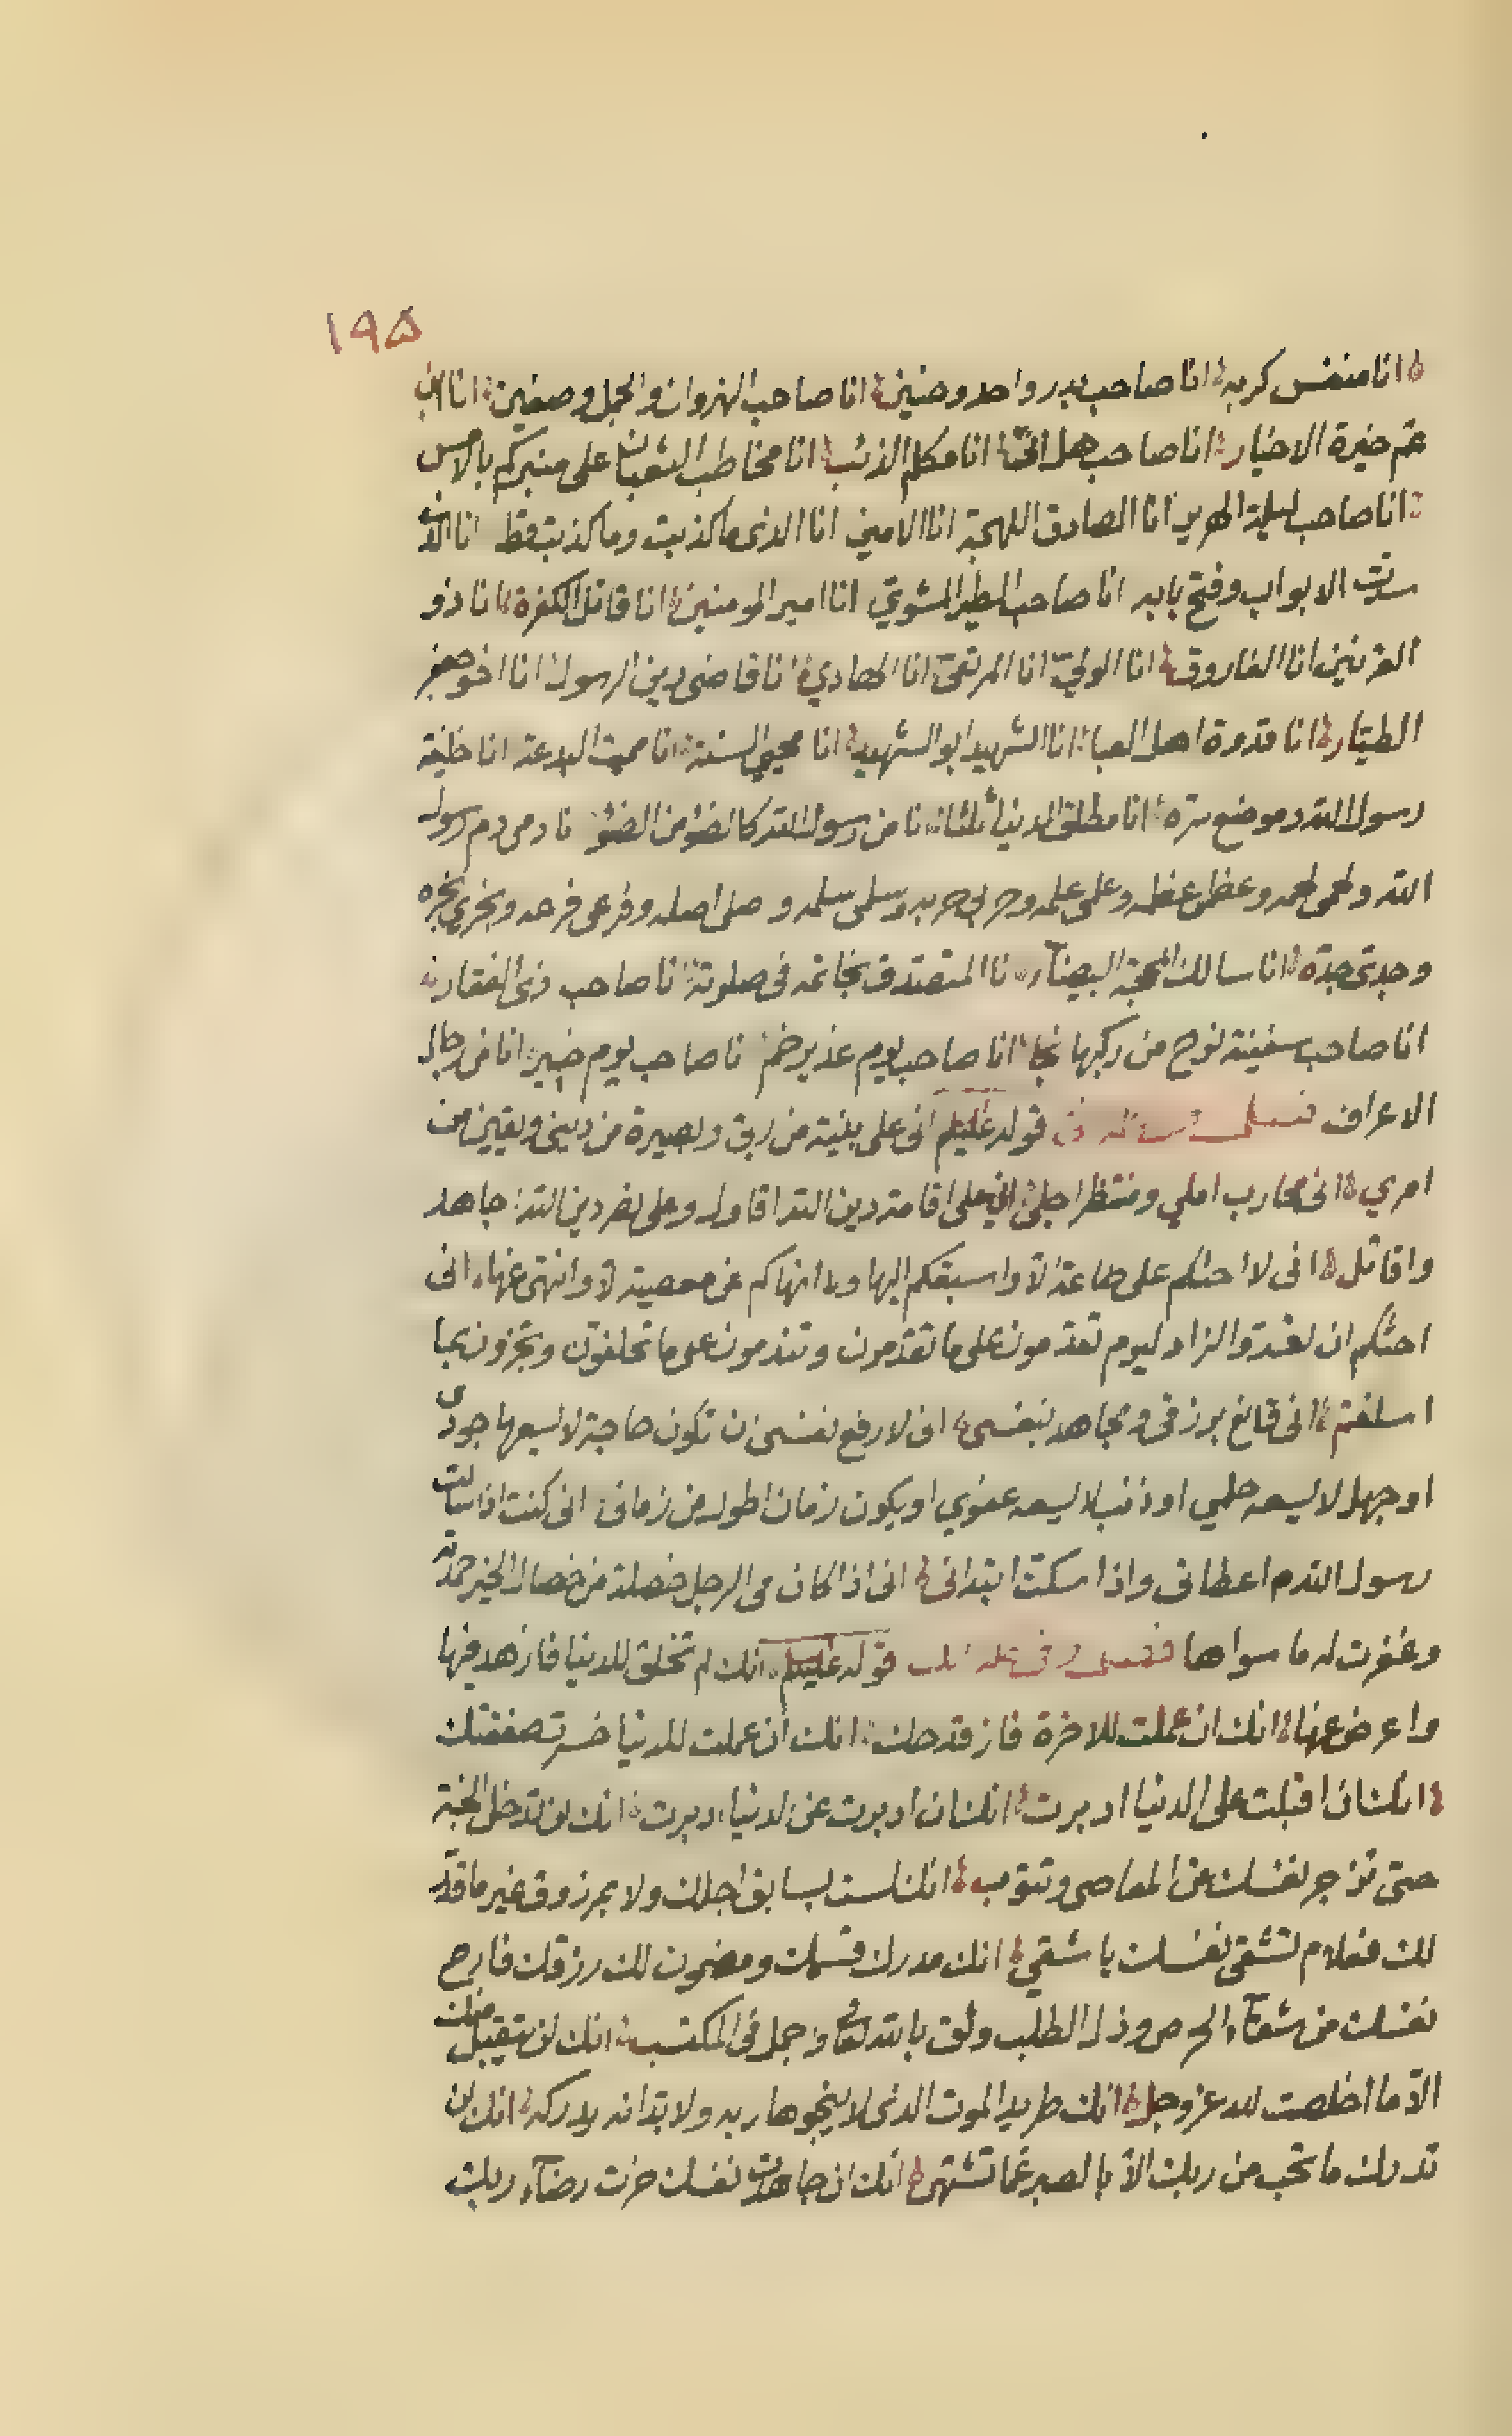 ١٩٥
انا منفس كربه انا صاحب بدر واحد وحنين انا صاحب النهروان والجمل وصفين انا ابن
عم خيرة الاخيار انا صاحب هل اتى انا مكلم الذئب انا مخاطب الثعبان على منبركم بالامس
انا صاحب ليلة الهرير انا الصادق اللهجة انا الامين انا الذى ما كذبت وما كذبت قط انا الذى
سدت الابواب وفتح بابه انا صاحب الطير المشوي انا امير المومنين انا قاتل الكفرة انا ذو
القرنين انا الفاروق انا الولي انا المرتضى انا الهادي انا قاضى دين الرسول انا اخو جعفر
الطيار انا قدوة اهل العبا انا الشهيد ابو الشهيد انا محيي السنة انا مميت البدعة انا خليفة
رسول الله وموضع سره انا مطلق الدنيا ثلثا انا من رسول الله كالضوء من الضوء نا دمى دم رسول
الله ولحمى لحمه وعظمى عظمه وعلمى علمه وحربى حربه وسلمى سلمه و صلى اصله وفرعى فرعه وبحرى بحره
وجدى جده انا سالك المحجة البيضآء نا المتصدق بخاتمه فى صلوته انا صاحب ذى الفقار
انا صاحب سفينة نوح من ركبها نجا انا صاحب يوم غدير خم نا صاحب يوم خيبر انا من رجال
الاعراف قوله عليلم انى على بينة من ربى وبصيرة من دينى ويقين من
امري انى محارب املي ومنتظر اجلى انى على اقامة دين الله اقاول وعلى نصر دين الله اجاهد
واقاتل انى لا احثكم على طاعة الا واسبقكم اليها ولا انهاكم عن معصية الا وانتهى عنها انى
احثكم ان تعدوا الزاد ليوم تقدمون على ما تقدمون وتندمون على ما تخلفون وتجزون بما
اسلفتم انى قانع برزقى ومجاهد بنفسى انى لارفع نفسى ان تكون حاجة لا يسعها جودى
او جهل لا يسعه حلمي او ذنب لا يسعه عفوي او يكون زمان اطول من زمانى انى كنت اذا سالت
رسول الله م اعطانى واذا سكت ابتدانى انى اذا كان فى الرجل خصلة من خصال الخير حمدته
وغفرت له ما سواها قوله عليلم انك لم تخلق للدنيا فازهد فيها
واعرض عنها انك ان عملت للاخرة فاز قدحك انك ان عملت للدنيا خسرت صفقتك
انك ان اقبلت على الدنيا ادبرت انك ان ادبرت عن الدنيا ادبرت انك لن تدخل الجنة
حتى تزجر نفسك عن المعاصى وتتوب انك لست بسابق اجلك ولا بمرزوق غير ما قدر
لك فعلام تشقى نفسك يا شقي انك مدرك قسمك ومضمون لك رزقك فارح
نفسك من شقآء الحرص وذل الطلب وثق بالله تعا واجمل فى المكتسب انك لن يتقبل منك
الا ما اخلصت لله عز وجل انك طريد الموت الذى لا ينجو هاربه ولا بد انه يدركه انك لن
تدرك ما تحب من ربك الا بالصبر عما تشتهى انك ان جاهدت نفسك حزت رضآء ربك